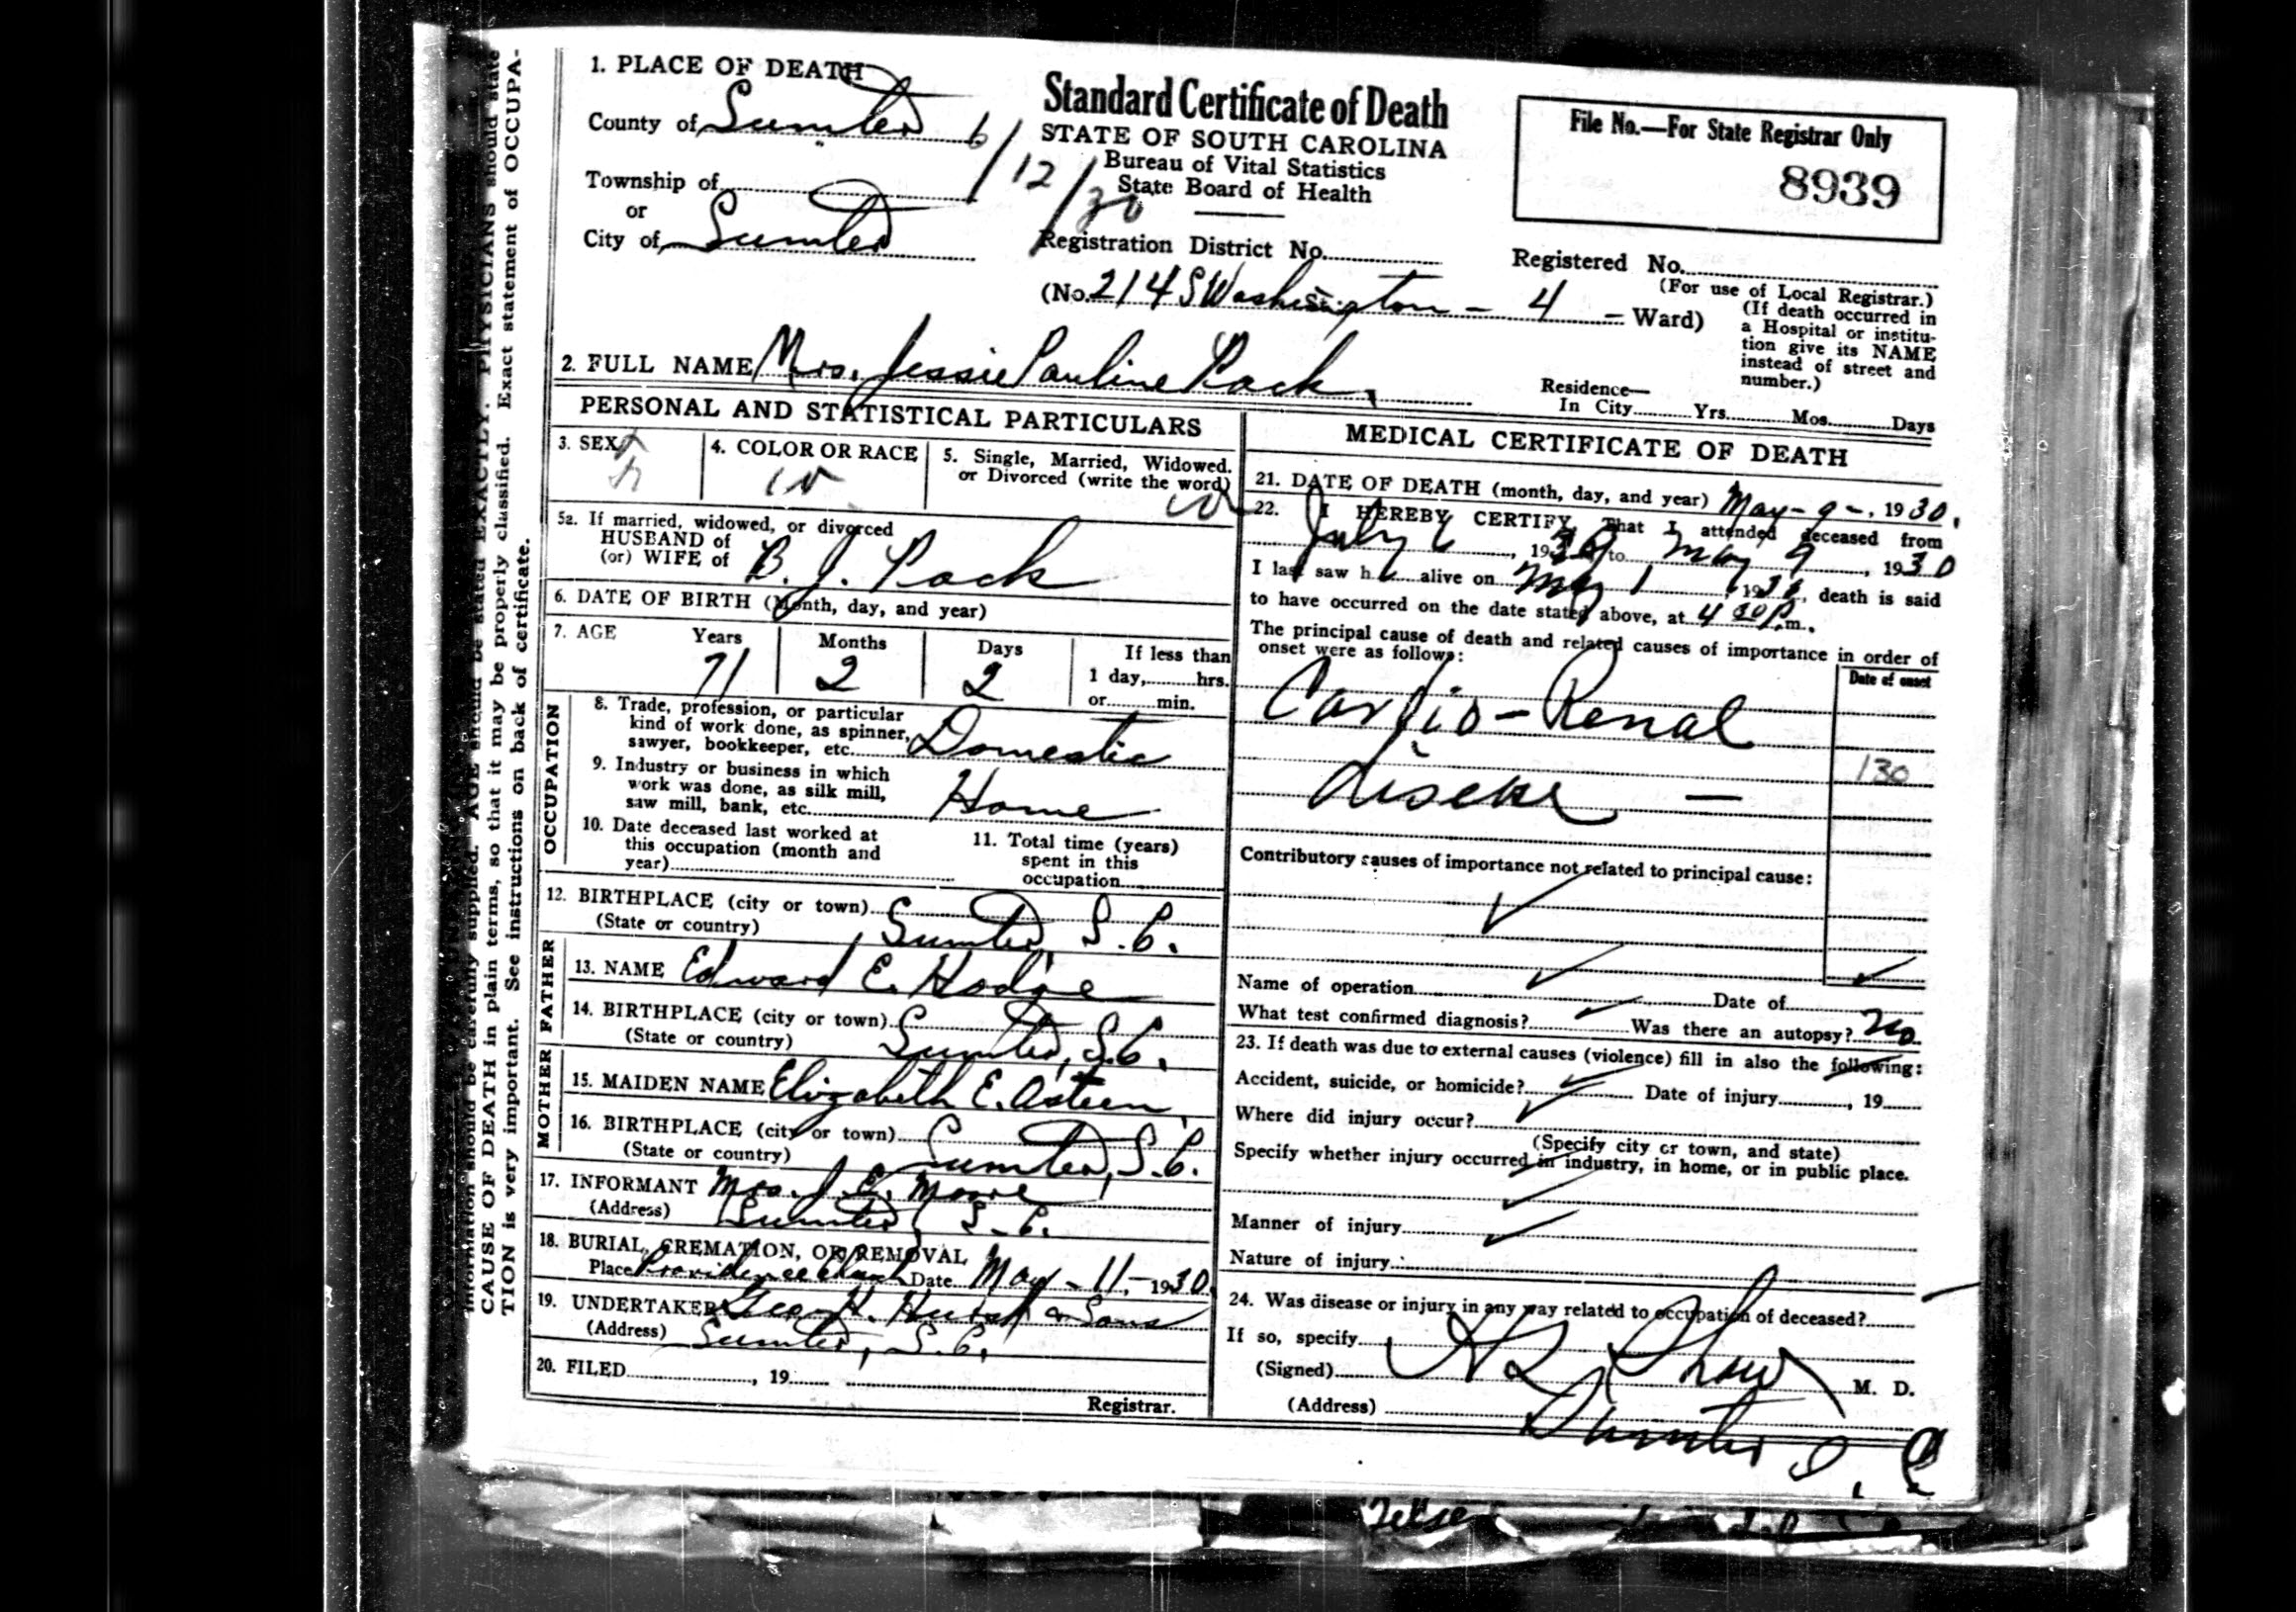 1. PLACE OF DEATH
County of Sumter
6/12/30
Township of
or
City of Sumter
Standard Certificate of Death
STATE OF SOUTH CAROLINA
Bureau of Vital Statistics
State Board of Health
File No.—For State Registrar Only
8939
Registration District No.
Registered No.
(For use of Local Registrar.)
(No. 214 S Washington - 4 - Ward)
(If death occurred in
a Hospital or institu-
tion give its NAME
instead of street and
number.)
2. FULL NAME Mrs. Jessie Pauline Pack,
Residence—
In City Yrs. Mos. Days
PERSONAL AND STATISTICAL PARTICULARS
3. SEX F
4. COLOR OR RACE W
5. Single, Married, Widowed.
or Divorced (write the word) W
5a. If married, widowed, or divorced
HUSBAND of
(or) WIFE of B. J. Pack
6. DATE OF BIRTH (Month, day, and year)
7. AGE Years Months Days If less than
71 2 2 1 day, hrs.
or min.
OCCUPATION
8. Trade, profession, or particular
kind of work done, as spinner,
sawyer, bookkeeper, etc. Domestic
9. Industry or business in which
work was done, as silk mill,
saw mill, bank, etc. Home
10. Date deceased last worked at
this occupation (month and
year)
11. Total time (years)
spent in this
occupation
12. BIRTHPLACE (city or town) Sumter, S.C.
(State or country)
FATHER
13. NAME Edward E. Hodge
14. BIRTHPLACE (city or town) Sumter, S.C.
(State or country)
MOTHER
15. MAIDEN NAME Elizabeth E. Osteen
16. BIRTHPLACE (city or town) Sumter, S.C.
(State or country)
17. INFORMANT Mrs. J. E. Moore
(Address) Sumter S.C.
18. BURIAL, CREMATION, OR REMOVAL
Place Providence Church Date May - 11, 1930
19. UNDERTAKER Geo. H. Hurst & Sons
(Address) Sumter, S.C.
20. FILED , 19
Registrar.
MEDICAL CERTIFICATE OF DEATH
21. DATE OF DEATH (month, day, and year) May - 9 -, 1930.
22. I HEREBY CERTIFY, That I attended deceased from
July 6, 19 to May 9, 1930
I last saw h alive on May 1, 19, death is said
to have occurred on the date stated above, at 4 30 P.m.
The principal cause of death and related causes of importance in order of
onset were as follows:
Date of onset
Cardio-Renal
disease -
130
Contributory causes of importance not related to principal cause:
Name of operation Date of
What test confirmed diagnosis? Was there an autopsy? no.
23. If death was due to external causes (violence) fill in also the following:
Accident, suicide, or homicide? Date of injury , 19
Where did injury occur?
(Specify city or town, and state)
Specify whether injury occurred in industry, in home, or in public place.
Manner of injury
Nature of injury
24. Was disease or injury in any way related to occupation of deceased?
If so, specify
(Signed) Shaw M. D.
(Address) Sumter S. C
AGE should be stated EXACTLY. PHYSICIANS should state
information should be carefully supplied.
CAUSE OF DEATH in plain terms, so that it may be properly classified. Exact statement of OCCUPA-
TION is very important. See instructions on back of certificate.